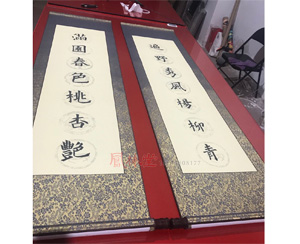 遍野風楊柳青
滿園春色桃杏艷